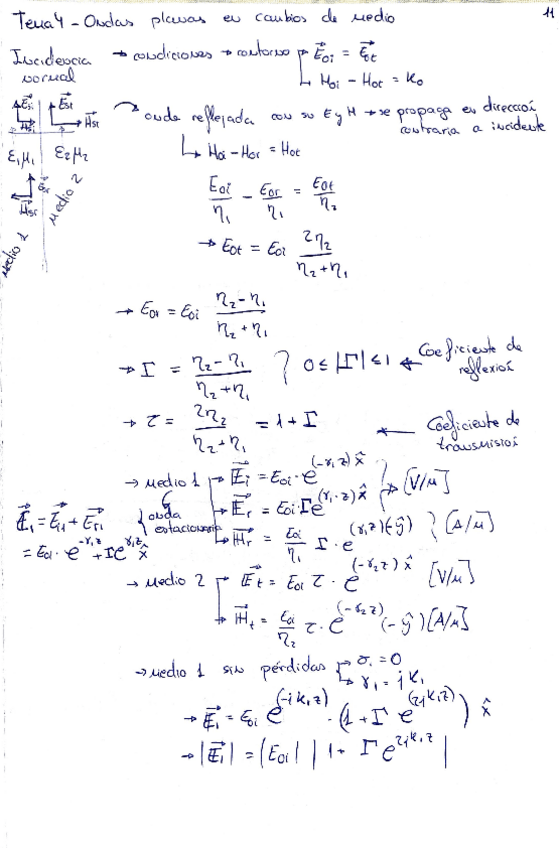 Tema 4 - Ondas planas en cambios de medio
11
Incidencia normal
→ condiciones → contorno → E⃗oi = E⃗ot
↳ Hoi - Hot = Ko
E⃗i E⃗t
H⃗t
ε1μ1 ε2μ2
Medio 1
Medio 2
onda reflejada con su E y H → se propaga en dirección
contraria a incidente
↳ Hoi - Hor = Hot
Eoi/η1 - Eor/η1 = Eot/η2
→ Eot = Eoi 2η2/(η2+η1)
→ Eor = Eoi (η2-η1)/(η2+η1)
→ Γ = (η2-η1)/(η2+η1) } 0≤|Γ|≤1 ← Coeficiente de reflexión
→ τ = 2η2/(η2+η1) = 1+Γ ← Coeficiente de transmisión
→ Medio 1 → E⃗i = Eoi·e^(-γ1z) x̂
→ E⃗r = Eoi·Γe^(γ1·z) x̂ } → [V/m]
→ H⃗r = Eoi/η1 Γ·e^(γ1z)(-ŷ) } [A/m]
{ onda estacionaria
E⃗1 = E⃗i1 + E⃗r1
= Eoi·e^-γ1z + Γe^γ1z x̂
→ Medio 2 → E⃗t = Eoi τ·e^(-γ2z) x̂ [V/m]
→ H⃗t = Eoi/η2 τ·e^(-γ2z) (-ŷ) [A/m]
→ Medio 1 sin pérdidas → σ1=0
↳ γ1 = jK1
→ E⃗1 = Eoi e^(-jK1z) · (1+Γ e^(2jK1z)) x̂
→ |E⃗1| = |Eoi| |1+ Γ e^2jK1z|